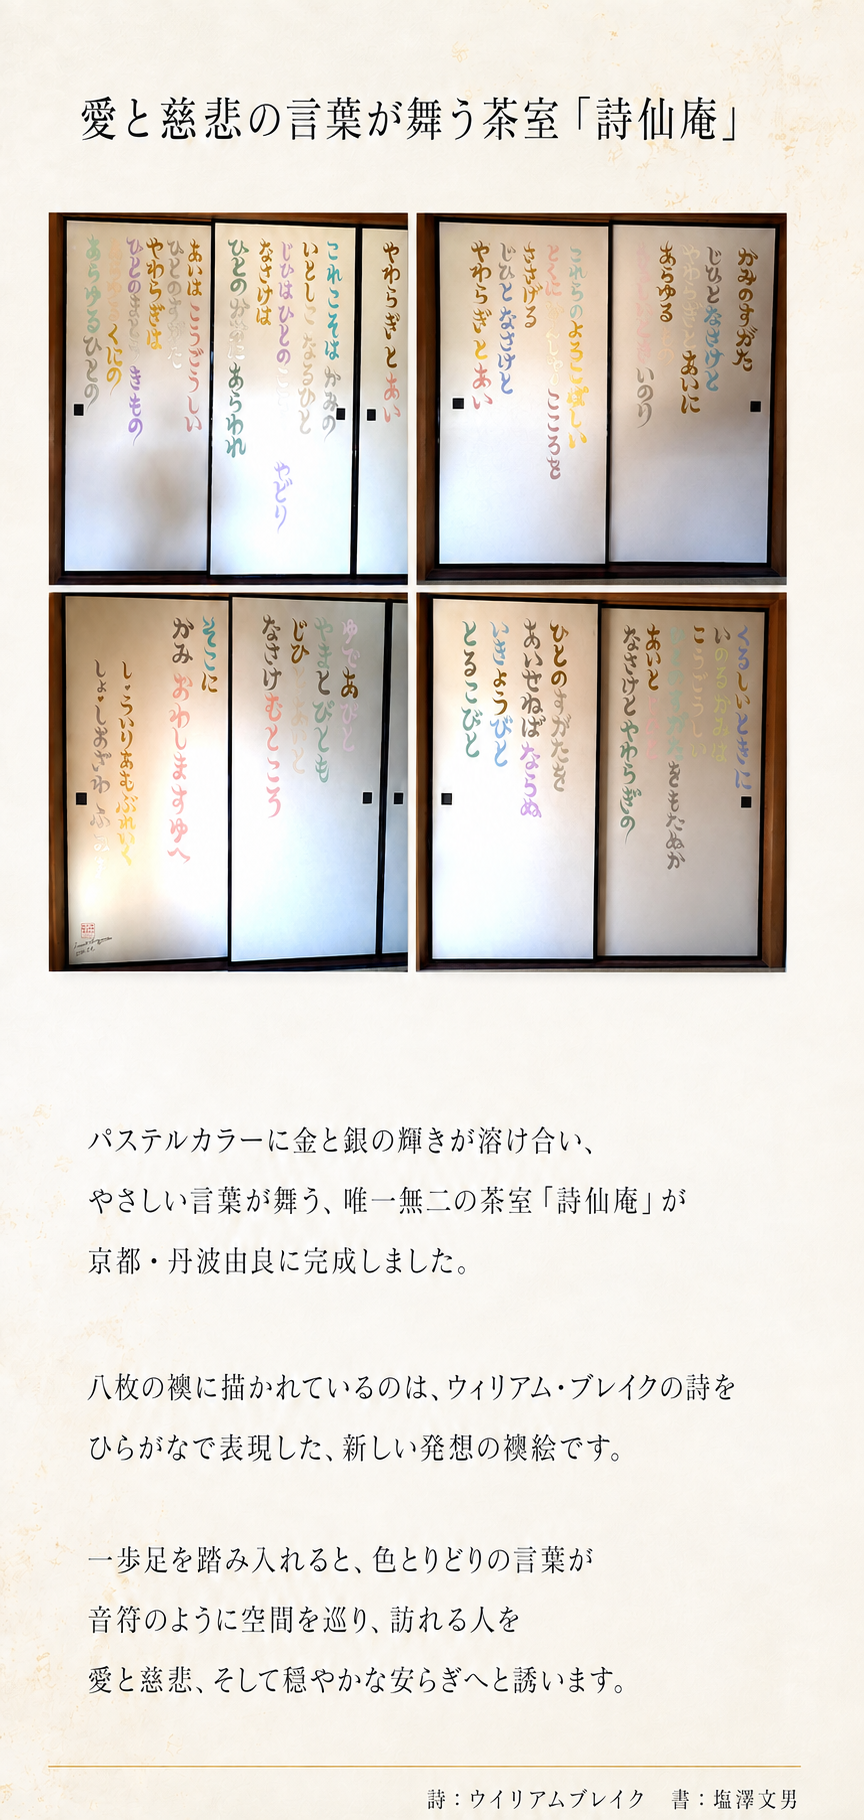 愛と慈悲の言葉が舞う茶室「詩仙庵」
やわらぎと あい
これこそは かみの
いとしこ なるひと
じひは ひとの
やどり
なさけは
ひとの
あらわれ
あいは こうごうしい
ひとのすがた
やわらぎは
ひとのまとう きもの
くにの
あらゆるひとの
かみのすがた
じひと なさけと
やわらぎと あいに
あらゆる
いのり
これらの よろこばしい
とくに
こころを
ささげる
じひと なさけと
やわらぎ と あい
ゆであ びと
やまと びとも
じひ と あいと
なさけ むところ
そこに
かみ おわしますゆへ
し しょういりあむぶれいく
しょ しおざわ ふみお
くるしいときに
いのるかみは
こうごうしい
ひとのすがた をもたぬか
あいと
なさけと やわらぎの
ひとのすがたを
あいせねば ならぬ
いきょうびと
とるこびと
パステルカラーに金と銀の輝きが溶け合い、
やさしい言葉が舞う、唯一無二の茶室「詩仙庵」が
京都・丹波由良に完成しました。
八枚の襖に描かれているのは、ウィリアム・ブレイクの詩を
ひらがなで表現した、新しい発想の襖絵です。
一歩足を踏み入れると、色とりどりの言葉が
音符のように空間を巡り、訪れる人を
愛と慈悲、そして穏やかな安らぎへと誘います。
詩：ウイリアムブレイク 書：塩澤文男